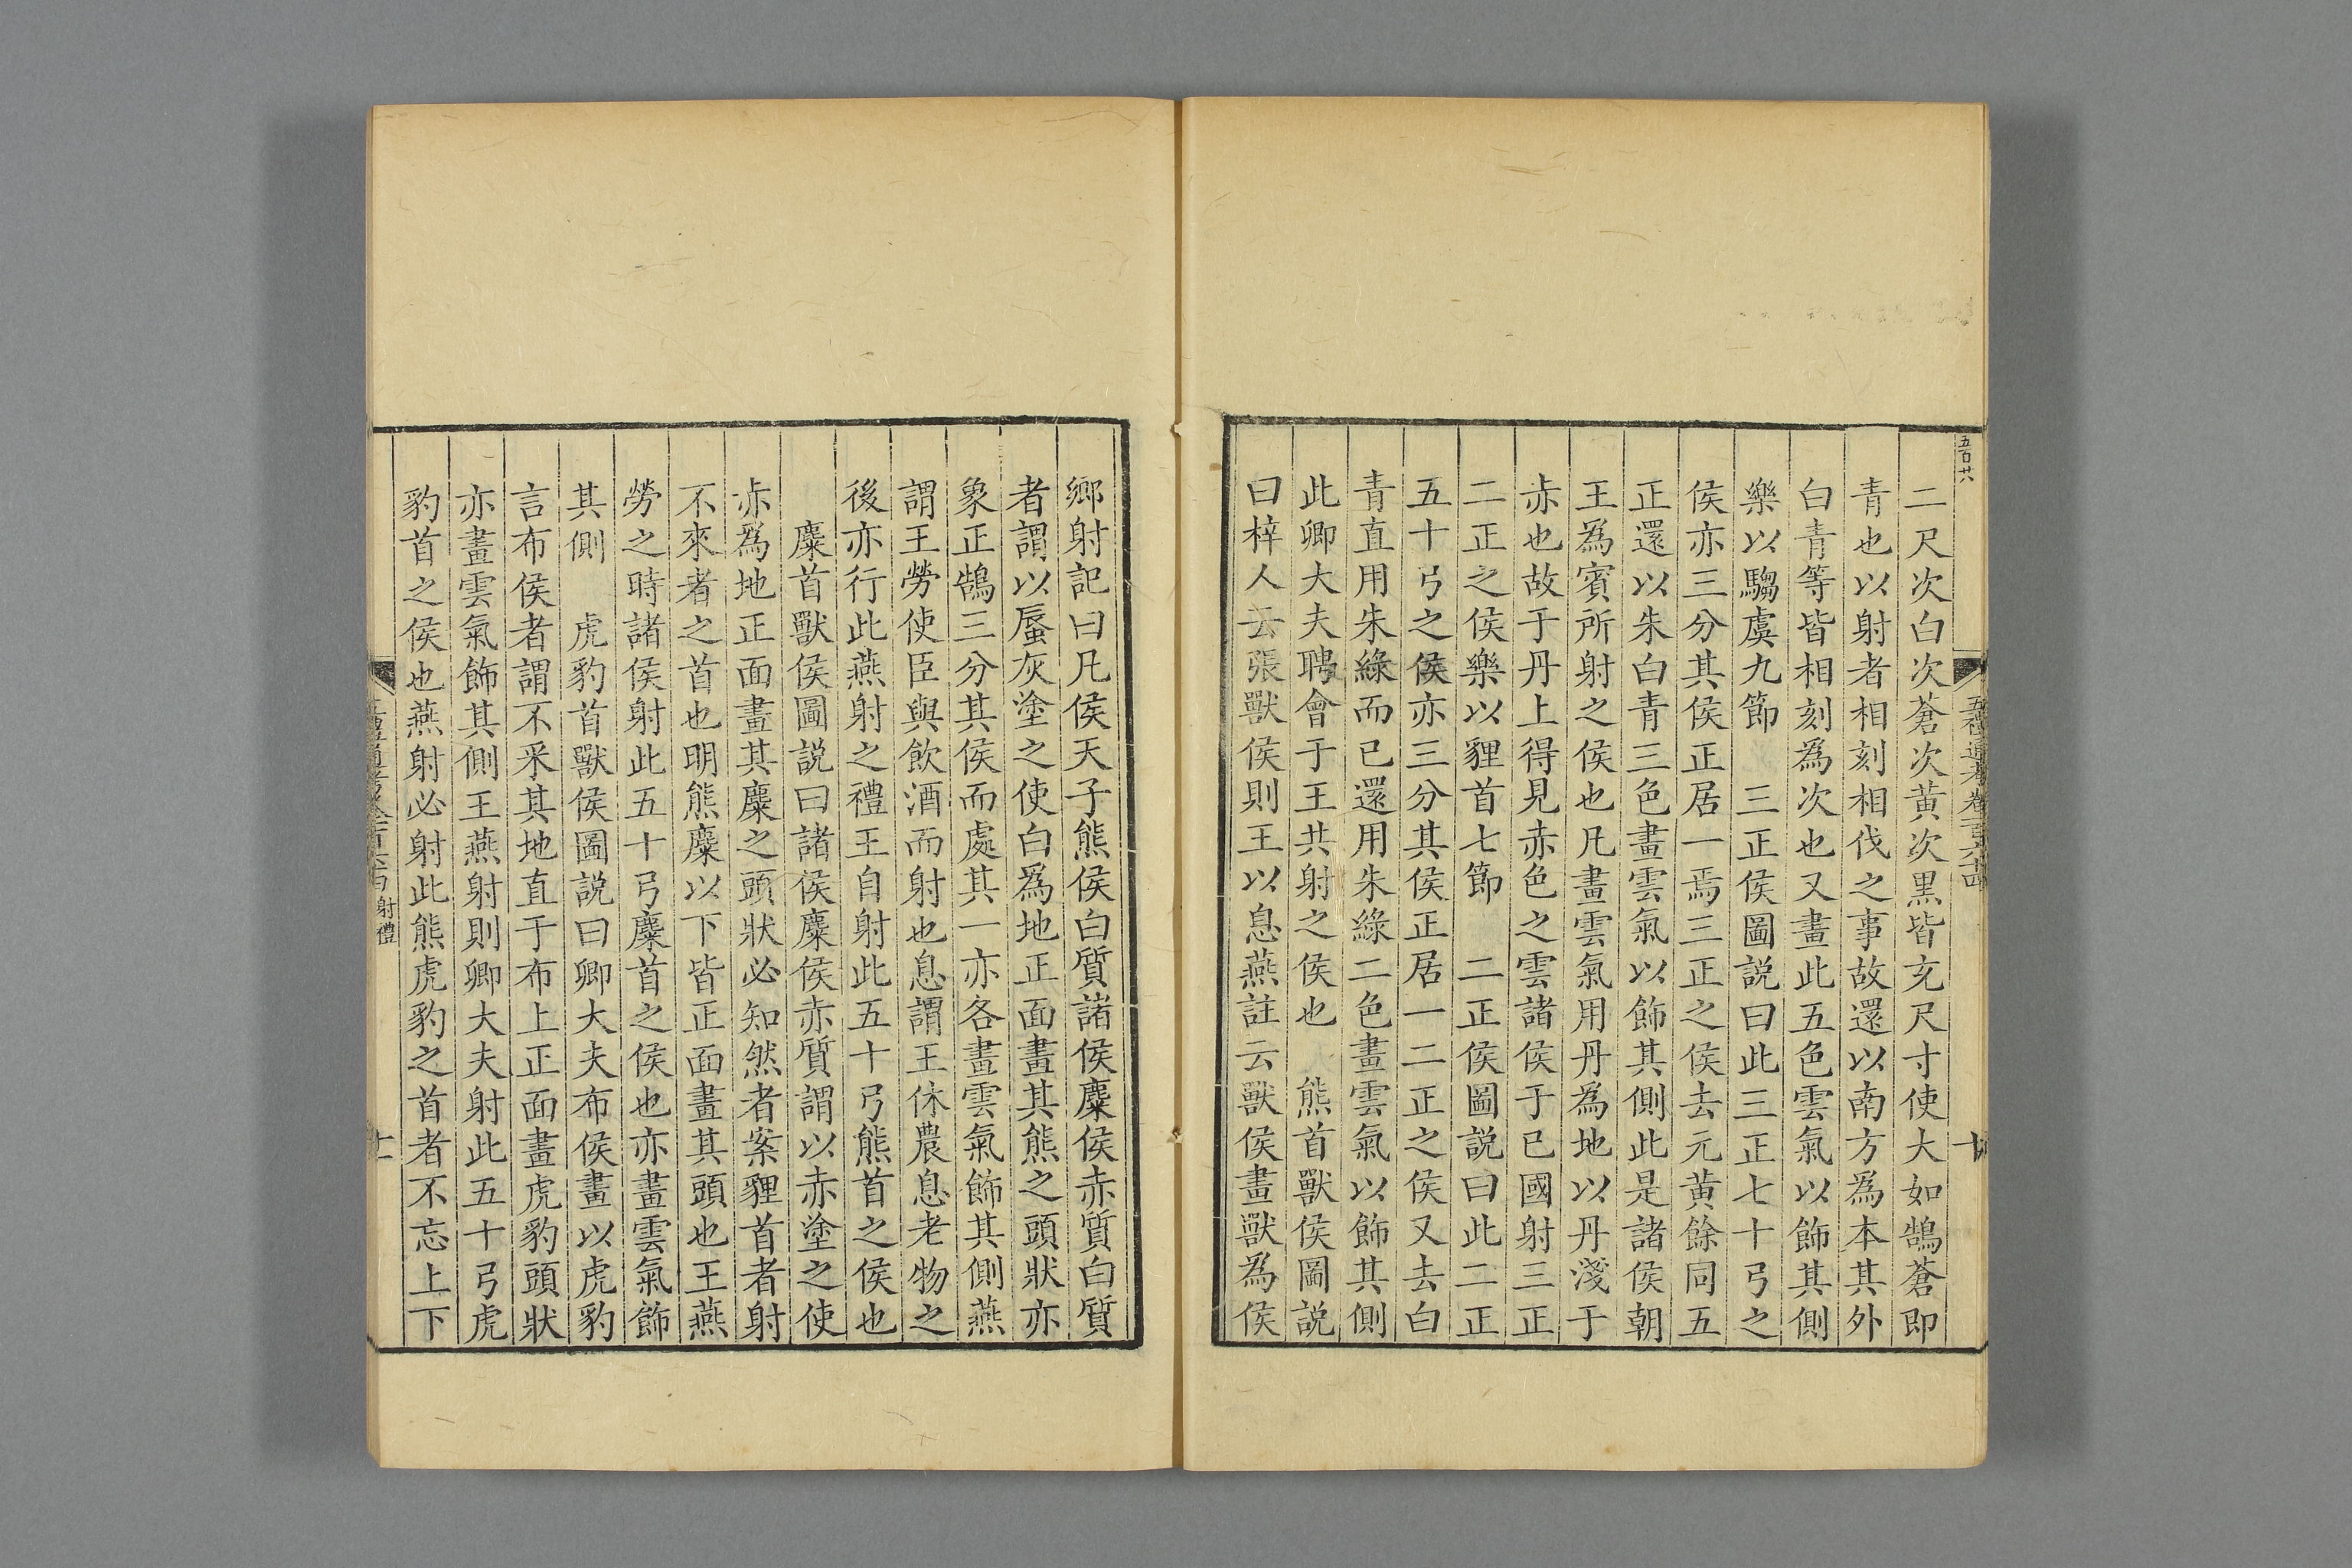 五百廿六
五禮通考卷一百六十四
十
二尺次白次蒼次黃次黑皆充尺寸使大如鵠蒼即
青也以射者相刻相伐之事故還以南方為本其外
白青等皆相刻為次也又畫此五色雲氣以飾其側
樂以騶虞九節　三正侯圖説曰此三正七十弓之
侯亦三分其侯正居一焉三正之侯去元黃餘同五
正還以朱白青三色畫雲氣以飾其側此是諸侯朝
王為賓所射之侯也凡畫雲氣用丹為地以丹淺于
赤也故于丹上得見赤色之雲諸侯于已國射三正
二正之侯樂以貍首七節　二正侯圖説曰此二正
五十弓之侯亦三分其侯正居一二正之侯又去白
青直用朱綠而已還用朱綠二色畫雲氣以飾其側
此卿大夫聘會于王共射之侯也　熊首獸侯圖説
曰梓人云張獸侯則王以息燕註云獸侯畫獸為侯
鄉射記曰凡侯天子熊侯白質諸侯麋侯赤質白質
者謂以蜃灰塗之使白為地正面畫其熊之頭狀亦
象正鵠三分其侯而處其一亦各畫雲氣飾其側燕
謂王勞使臣與飲酒而射也息謂王休農息老物之
後亦行此燕射之禮王自射此五十弓熊首之侯也
麋首獸侯圖説曰諸侯麋侯赤質謂以赤塗之使
赤為地正面畫其麋之頭狀必知然者案貍首者射
不來者之首也明熊麋以下皆正面畫其頭也王燕
勞之時諸侯射此五十弓麋首之侯也亦畫雲氣飾
其側　虎豹首獸侯圖説曰卿大夫布侯畫以虎豹
言布侯者謂不采其地直于布上正面畫虎豹頭狀
亦畫雲氣飾其側王燕射則卿大夫射此五十弓虎
豹首之侯也燕射必射此熊虎豹之首者不忘上下
射禮
十一